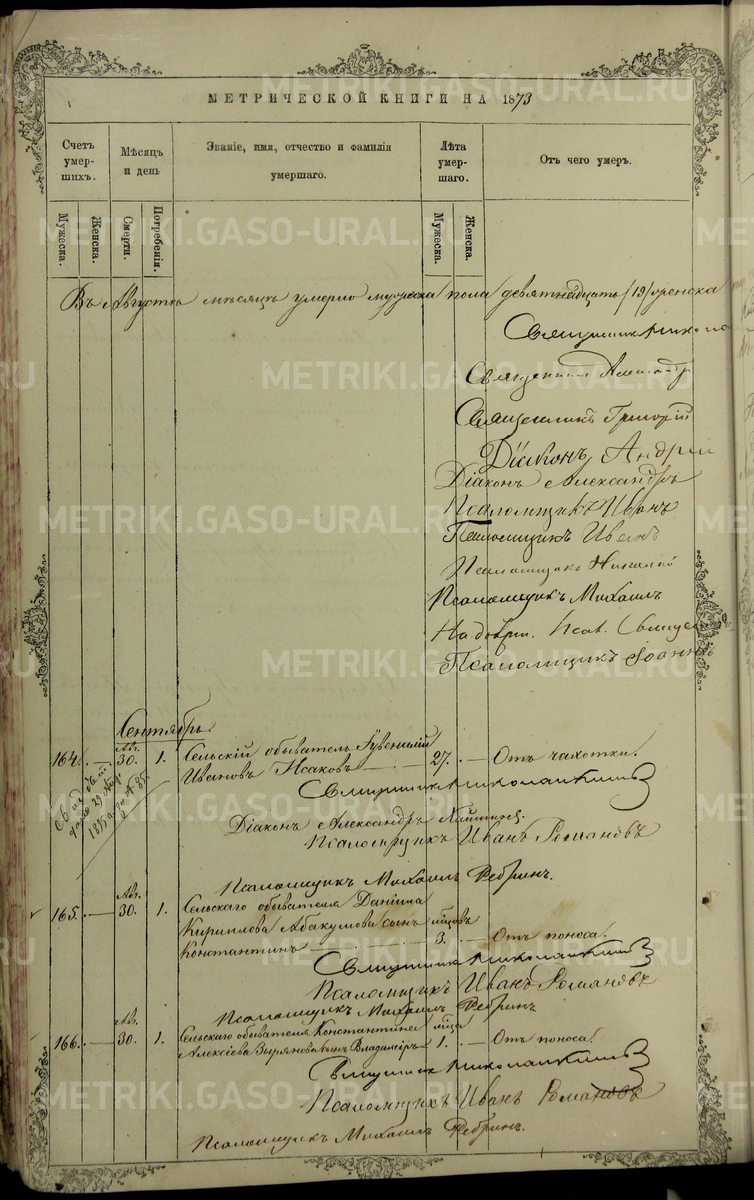 МЕТРИЧЕСКОЙ КНИГИ НА 1873
Счетъ умер-шихъ.
Мѣсяцъ и день
Званіе, имя, отчество и фамилія умершаго.
Лѣта умер-шаго.
Отъ чего умеръ.
Мужеска.
Женска.
Смерти.
Погребенія.
Мужеска.
Женска.
Въ Августѣ мѣсяцѣ умерло мужеска пола девятнадцать /19/ женска
Священникъ Никола
Священникъ Александр
Священникъ Григорій
Діаконъ Андрей
Діаконъ Александръ
Псаломщикъ Иванъ
Псаломщикъ Иванъ
Псаломщикъ Николай
Псаломщикъ Михаилъ
Псаломщикъ Іоаннъ
Сентябрь.
Авг.
164. — 30. 1. Сельскій обыватель Іувеналій
Ивановъ Исаковъ — 27. — Отъ чахотки.
Священникъ
Діаконъ Александръ
Псаломщикъ Иванъ Романовъ
Псаломщикъ Михаилъ Ребринъ.
Авг.
165. — 30. 1. Сельскаго обывателя Даніила
Кириллова Абакумова сынъ мѣсцовъ
Константинъ — 3. — Отъ поноса.
Священникъ
Псаломщикъ Иванъ Романовъ
Псаломщикъ Михаилъ Ребринъ
Авг.
166. — 30. 1. Сельскаго обывателя Константина мѣсца
Алексіева Зырянова сынъ Владиміръ 1. — Отъ поноса.
Священникъ
Псаломщикъ Иванъ Романовъ
Псаломщикъ Михаилъ Ребринъ.
METRIKI.GASO-URAL.RU